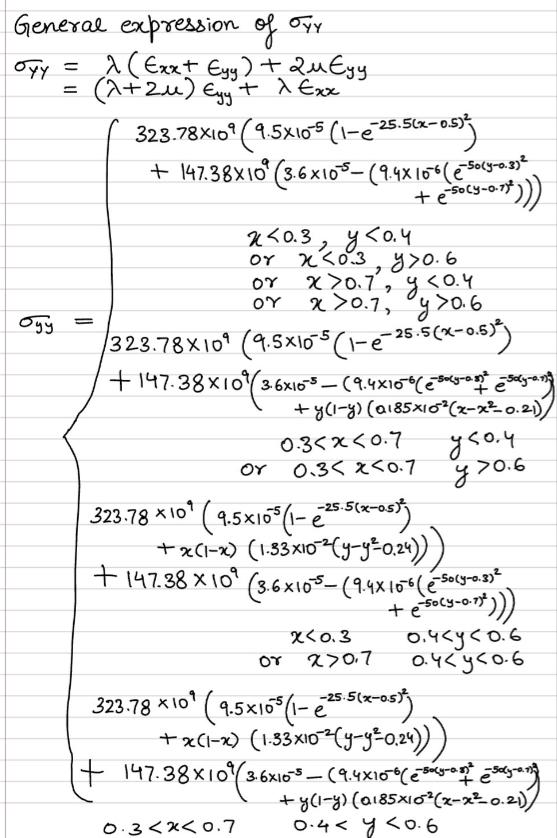 General expression of σyy
σyy = λ(Exx + Eyy) + 2μEyy
= (λ+2μ) Eyy + λ Exx
323.78×10⁹ (9.5×10⁻⁵ (1-e^-25.5(x-0.5)²)
+ 147.38×10⁹ (3.6×10⁻⁵ - (9.4×10⁻⁶(e^-50(y-0.3)²
+ e^-50(y-0.7)²)))
x<0.3, y<0.4
or x<0.3, y>0.6
or x>0.7, y<0.4
or x>0.7, y>0.6
σyy =
323.78×10⁹ (9.5×10⁻⁵ (1-e^-25.5(x-0.5)²)
+ 147.38×10⁹ (3.6×10⁻⁵ - (9.4×10⁻⁶(e^-50(y-0.3)² + e^-50(y-0.7)²
+ y(1-y) (0.185×10⁻²(x-x²-0.21))
0.3<x<0.7 y<0.4
or 0.3<x<0.7 y>0.6
323.78×10⁹ (9.5×10⁻⁵(1-e^-25.5(x-0.5)²)
+ x(1-x) (1.33×10⁻²(y-y²-0.24)))
+ 147.38×10⁹ (3.6×10⁻⁵ - (9.4×10⁻⁶(e^-50(y-0.3)²
+ e^-50(y-0.7)²)))
x<0.3 0.4<y<0.6
or x>0.7 0.4<y<0.6
323.78×10⁹ (9.5×10⁻⁵(1-e^-25.5(x-0.5)²)
+ x(1-x) (1.33×10⁻²(y-y²-0.24)))
+ 147.38×10⁹(3.6×10⁻⁵ - (9.4×10⁻⁶(e^-50(y-0.3)² + e^-50(y-0.7)²
+ y(1-y) (0.185×10⁻²(x-x²-0.21))
0.3<x<0.7 0.4<y<0.6